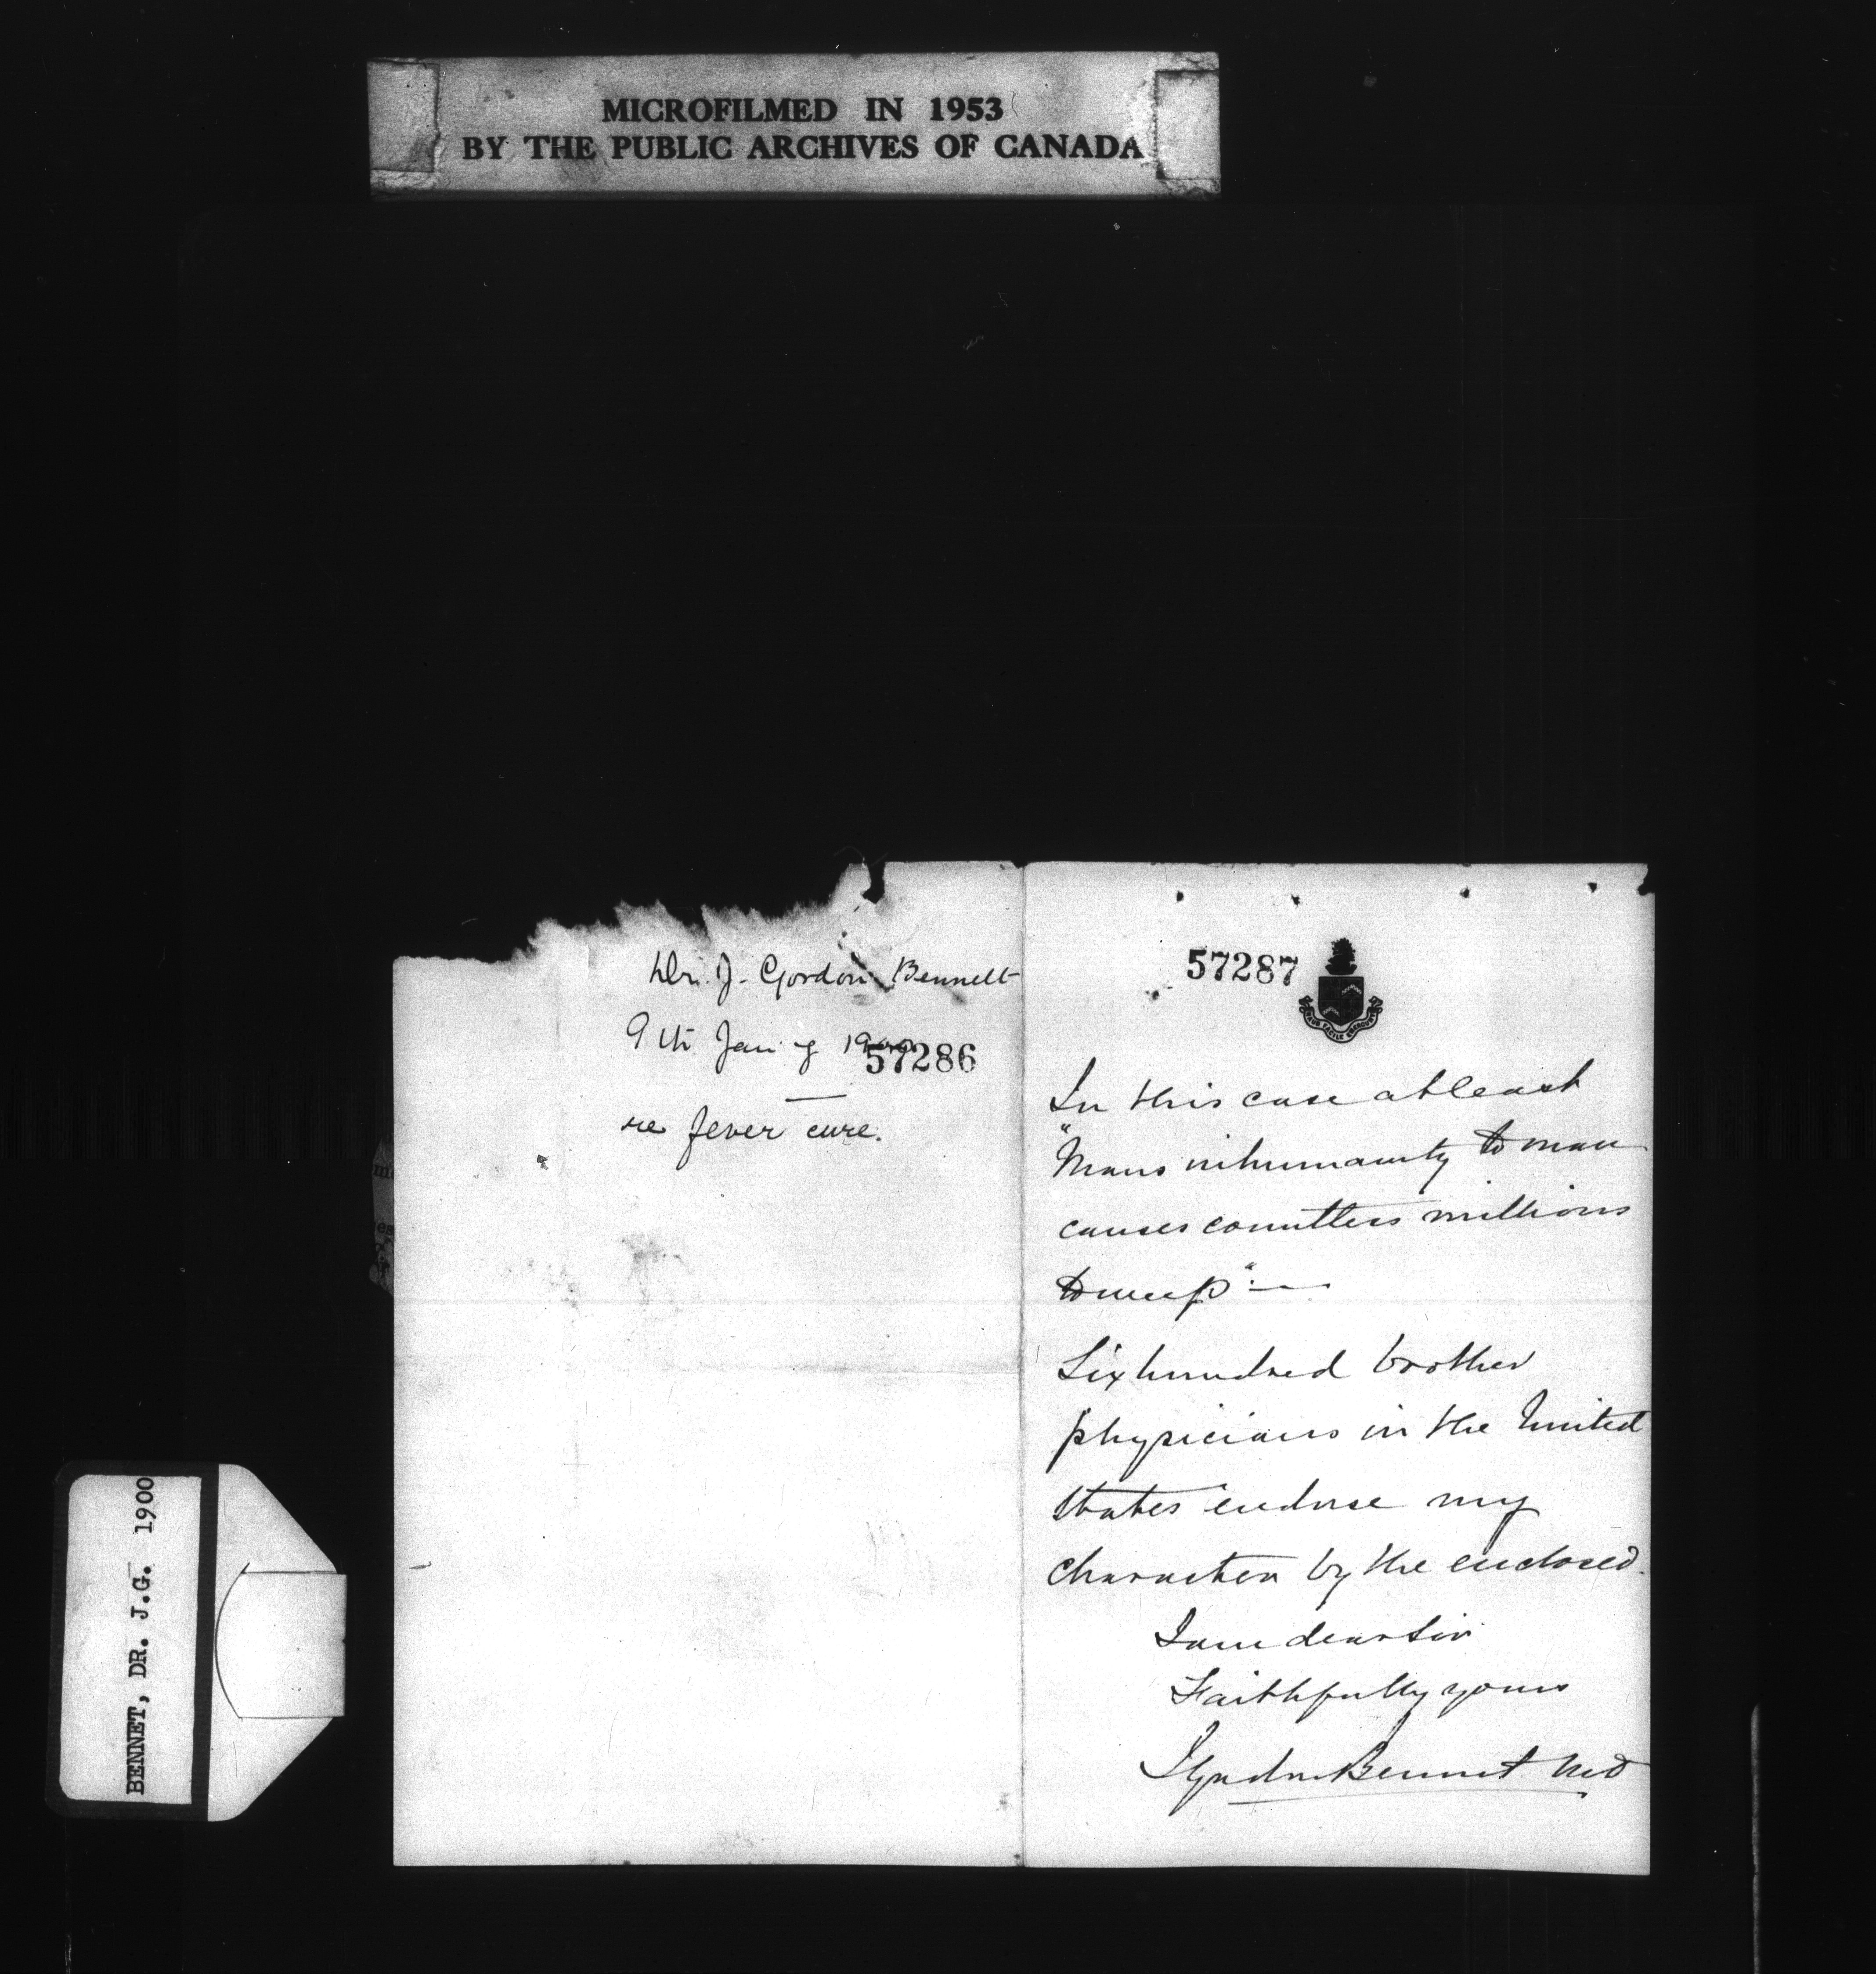 MICROFILMED IN 1953
BY THE PUBLIC ARCHIVES OF CANADA
Dr. J. Gordon Bennett
9th Jan'y 1900
57286
re fever cure.
57287
In this case at least
"Mans inhumanity to man
causes countless millions
to weep" —
Six hundred brother
physicians in the United
States endorse my
character by the enclosed.
I am dear Sir
Faithfully yours
J Gordon Bennet MD
BENNET, DR. J.G. 1900